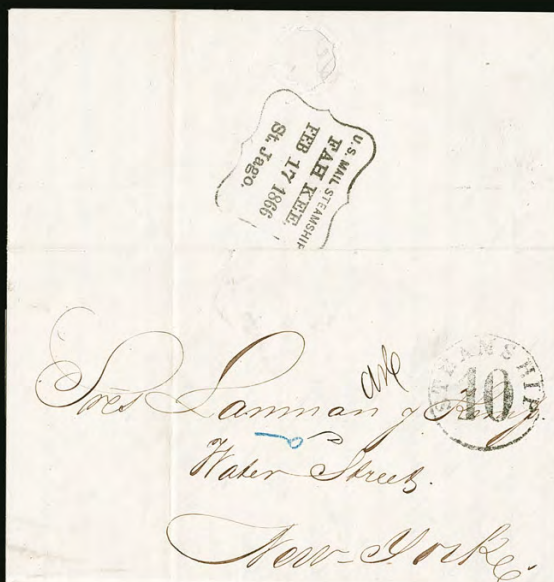 U.S. MAIL STEAMSHIP
FAH KEE,
FEB 17 1866
St. Jago.
STEAMSHIP
10
Sres Lanman y Kemp
Water Street.
New-York